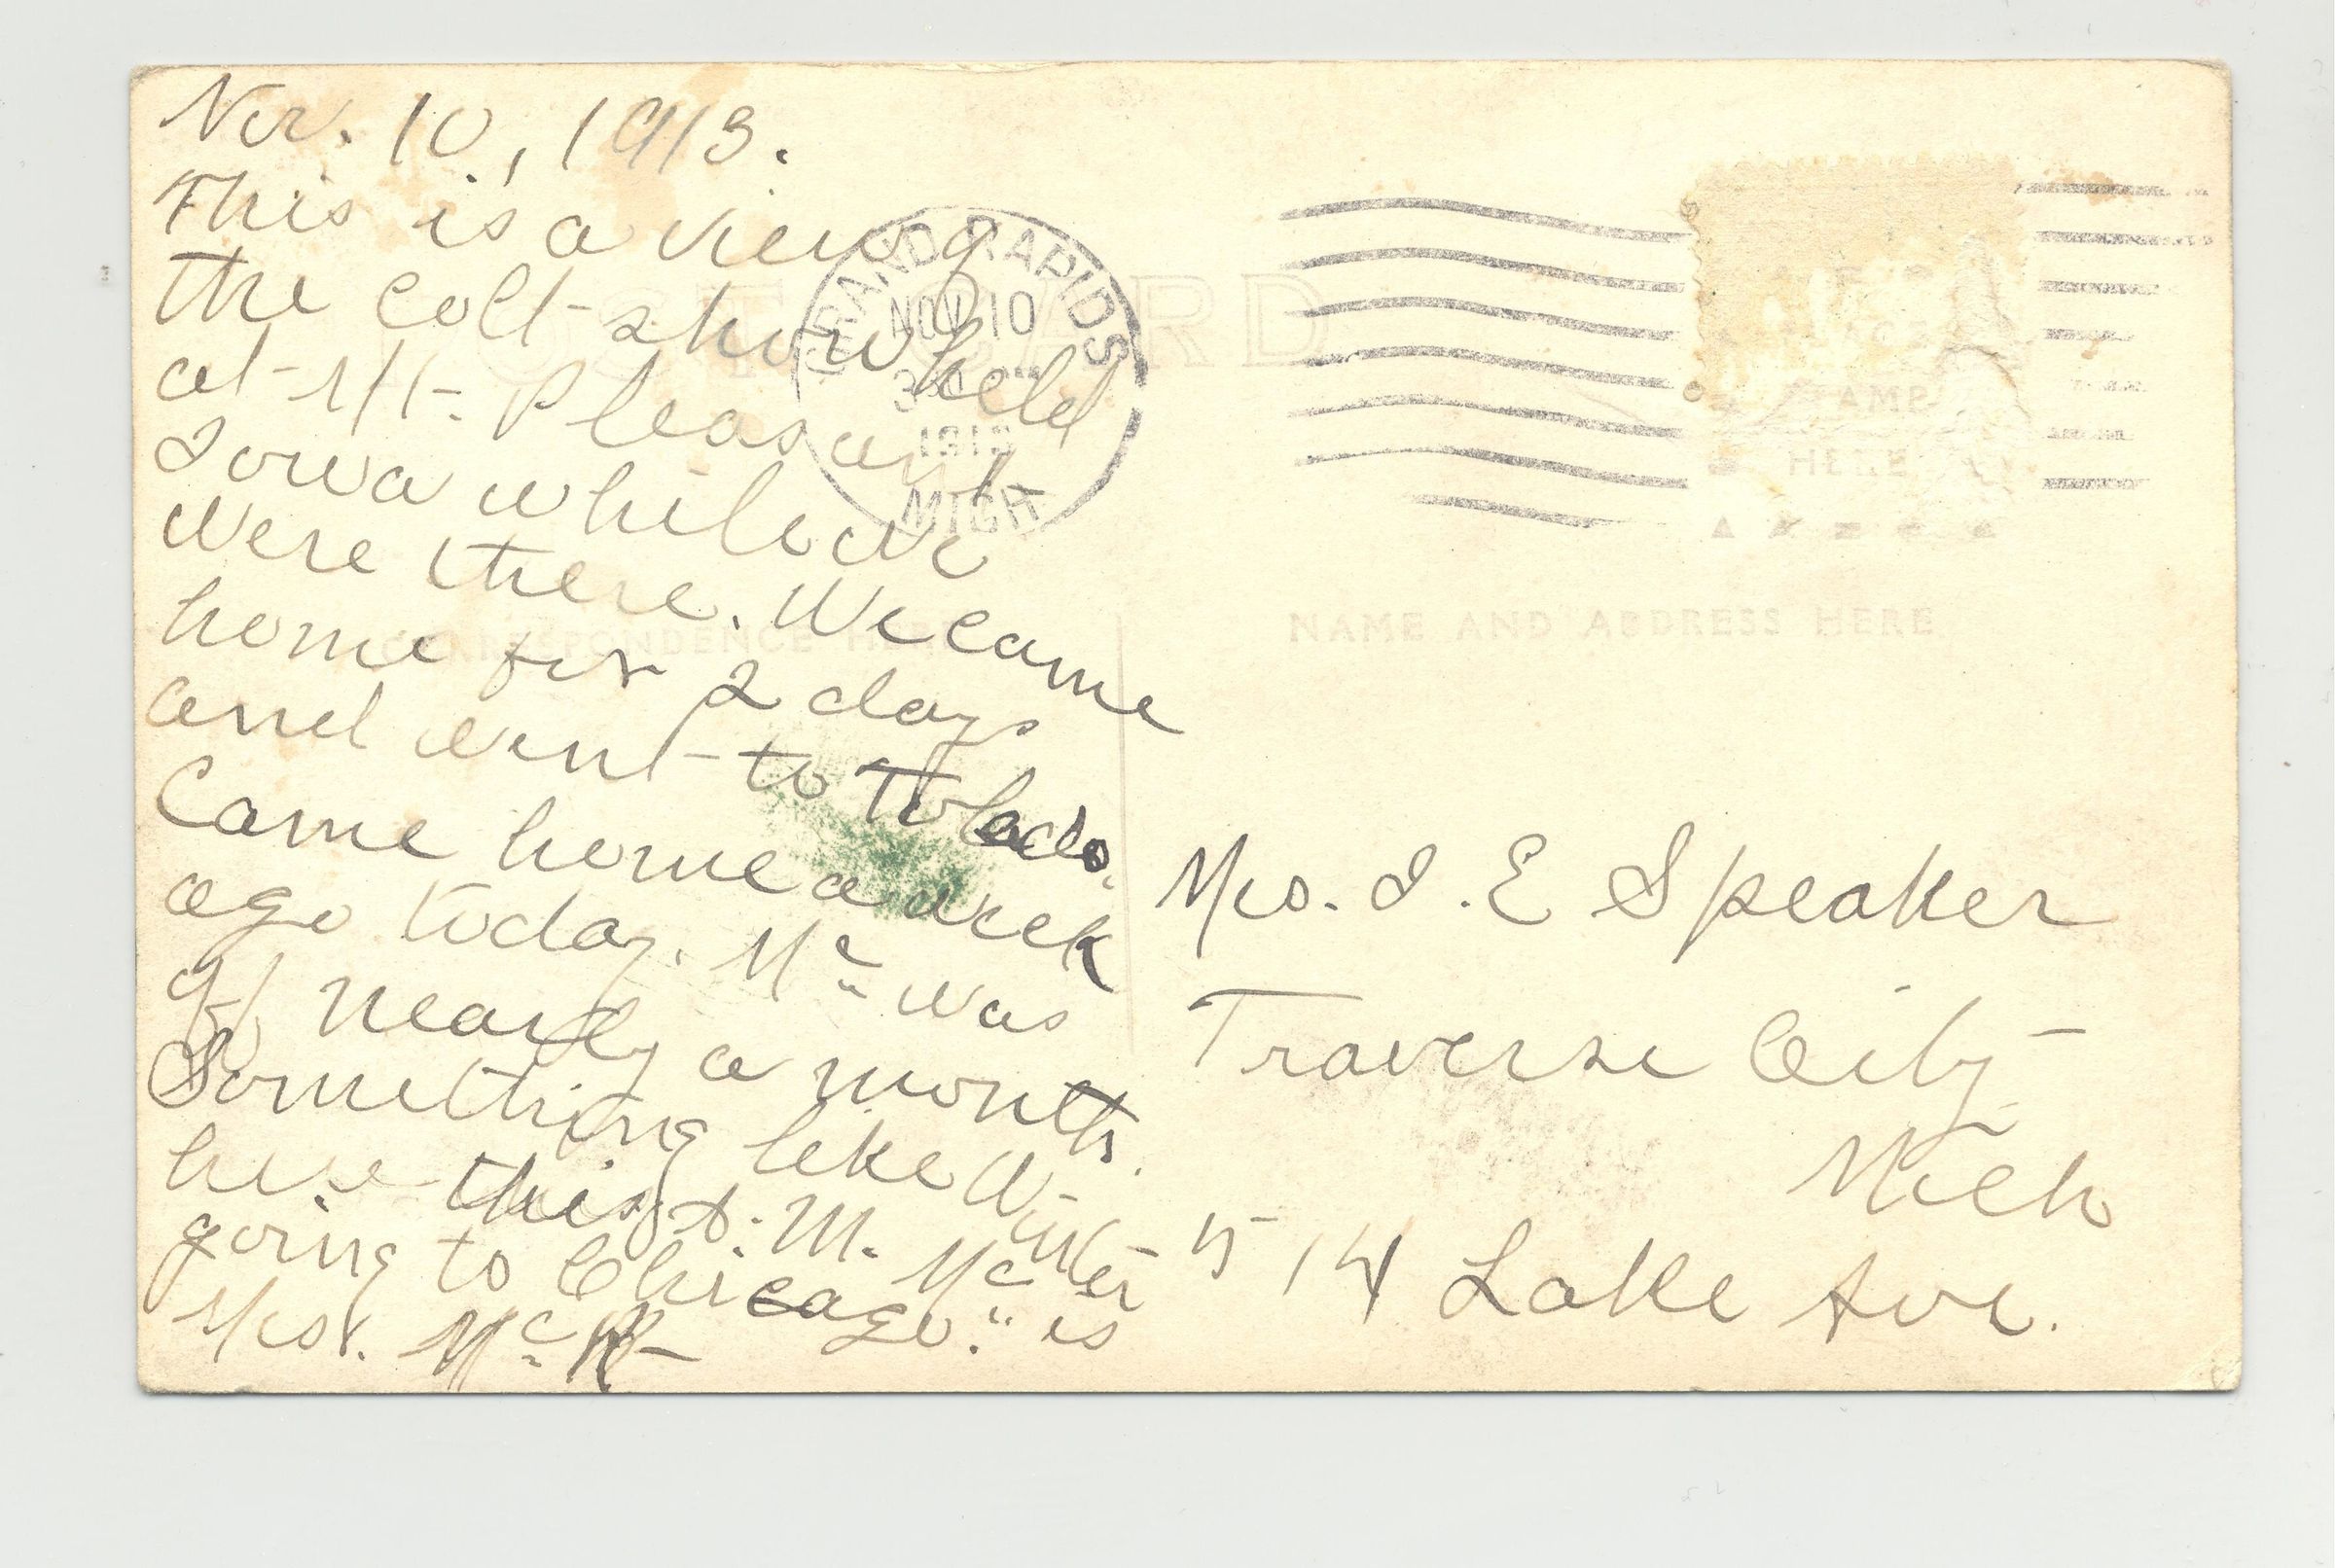 Nov. 10, 1913.
This is a view of
the colt show held
at Mt. Pleasant
Iowa while we
were there. We came
home for 2 days
and went to Toledo.
Came home a week
ago today. Mc was
of nearly a month.
Something like Winter
here this A. M. Mc is
going to Chicago.
Mrs. Mc
GRAND RAPIDS
NOV 10
1913
MICH
POST CARD
STAMP
HERE
CORRESPONDENCE HERE
NAME AND ADDRESS HERE
Mrs. I. E Speaker
Traverse City
Mich
514 Lake Ave.